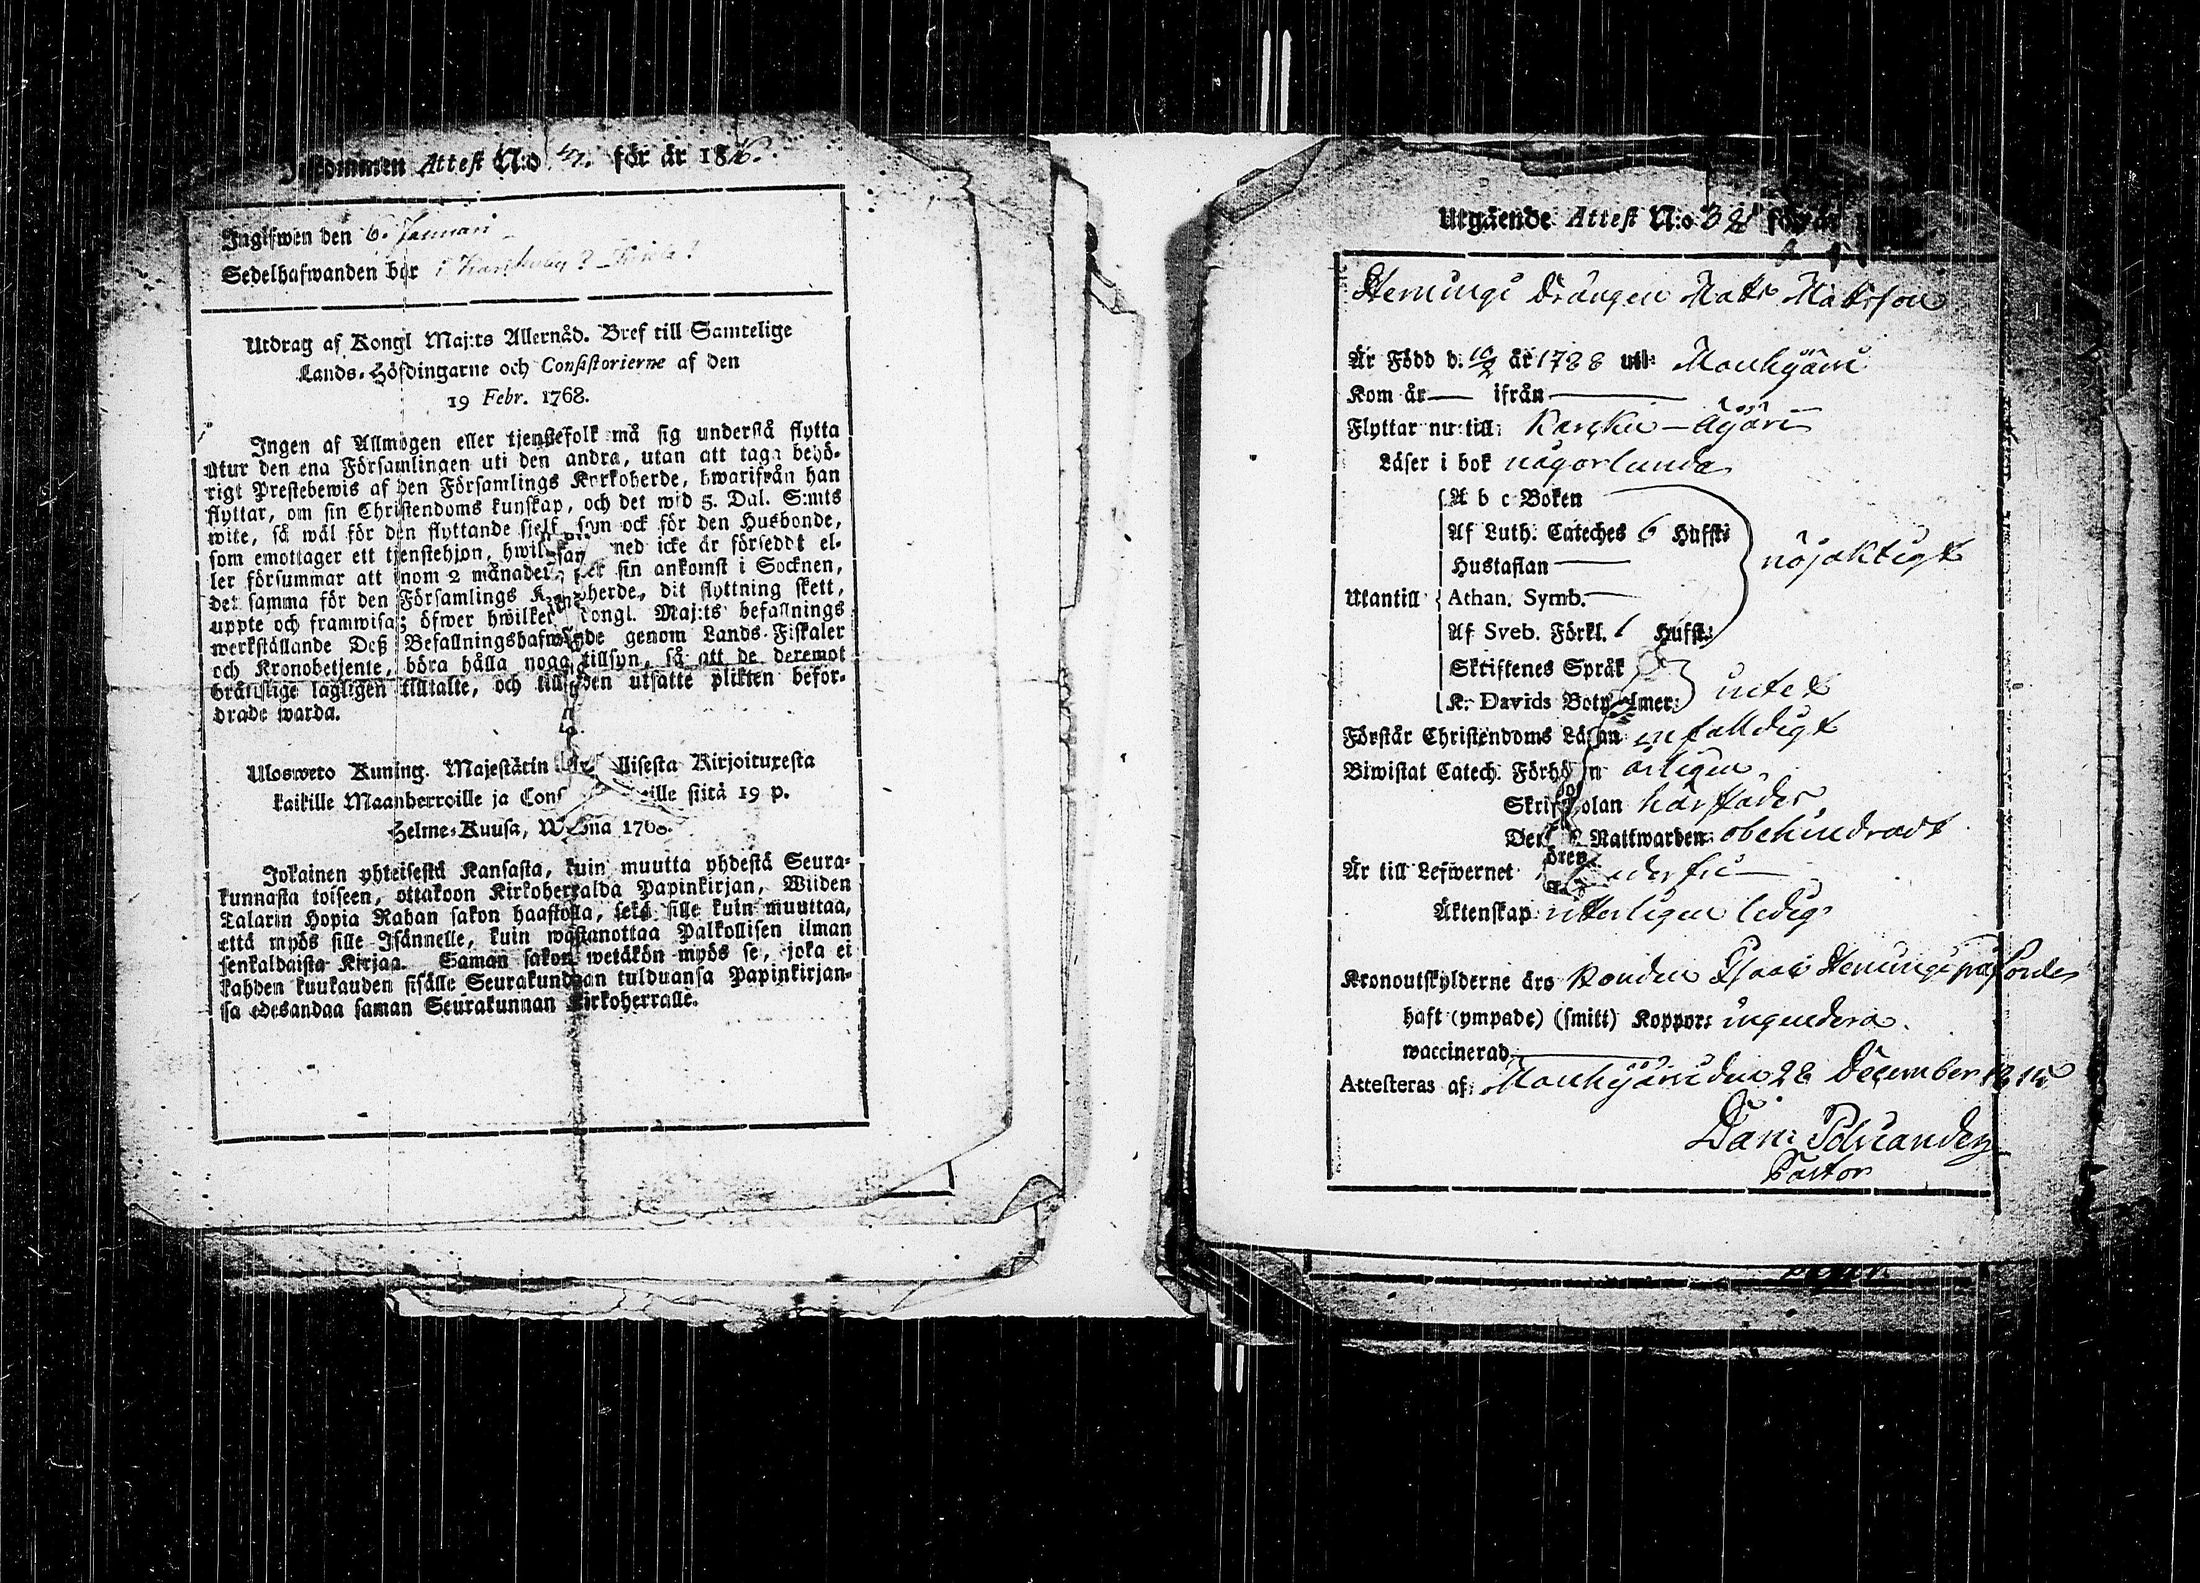 Inkommen Attest N:o för år 1816.
Ingifwen den 6. Januari
Sedelhafwanden bor i
Utdrag af Kongl Maj:ts Allernåd. Bref till Samtelige
Lands-Höfdingarne och Consistorierne af den
19 Febr. 1768.
Ingen af Allmogen eller tjenstefolk må sig understå flytta
utur den ena Församlingen uti den andra, utan att taga behö-
rigt Prestebewis af den Församlings Kyrkoherde, hwarifrån han
flyttar, om sin Christendoms kunskap, och det wid 5. Dal. S:mts
wite, så wäl för den flyttande sjelf, som ock för den Husbonde,
som emottager ett tjenstehjon, hwilket ned icke är förseddt el-
ler försummar att inom 2 månader sin ankomst i Socknen,
det samma för den Församlings Kyrkoherde, dit flyttning skett,
uppte och framwisa; öfwer hwilket Kongl. Maj:ts befallnings
werkställande Deß Befallningshafwande genom Lands-Fiskaler
och Kronobetjente, böra hålla noga tillsyn, så att de deremot
brätslige lagligen tilltalte, och till den utsatte plikten befor-
drade warda.
Ulosweto Kuning. Majestätin Kirjoituxesta
kaikille Maanherroille ja siitä 19 p.
Helme-Kuusa, Wuona 1768.
Jokainen yhteisestä Kansasta, kuin muutta yhdestä Seura-
kunnasta toiseen, ottakoon Kirkoherralda Papinkirjan, Wiiden
Talarin Hopia Rahan sakon haastolla, sekä sille kuin muuttaa,
että myös sille Isännelle, kuin wastanottaa Palkollisen ilman
senkaldaista Kirjaa. Saman sakon wetäkön myös se, joka ei
kahden kuukauden sisälle Seurakundaan tulduansa Papinkirjan-
sa edesandaa saman Seurakunnan Kirkoherralle.
Utgående Attest N:o 38 för år
Hemings Drängen Matts Mattsson
Är Född d. 10/2 år 1788 uti: Mouhijärvi
Kom år — ifrån —
Flyttar nu till: Karcku
Läser i bok någorlunda
A b c Boken
Af Luth. Cateches 6 Hufst:
Hustaflan —
nöjaktigt
Utantill Athan. Symb. —
Af Sveb. Förkl. 1 Hufst:
Skriftenes Språk
K. Davids Botpsalmer: intet
Förstår Christendoms Läran enfalldigt
Biwistat Catech. Förhören årligen
Skriftskolan härstädes
Herrans Nattwarden: obehindradt
Är till Lefwernet
Äktenskap: ytterligen ledig
Kronoutskylderne äro Bonden Isaac Hemings påförde
haft (ympade) (smitt) Koppor: ingendera.
waccinerad —
Attesteras af: Mouhijärvi den 28 December 1815
Dan: Polviander
Pastor